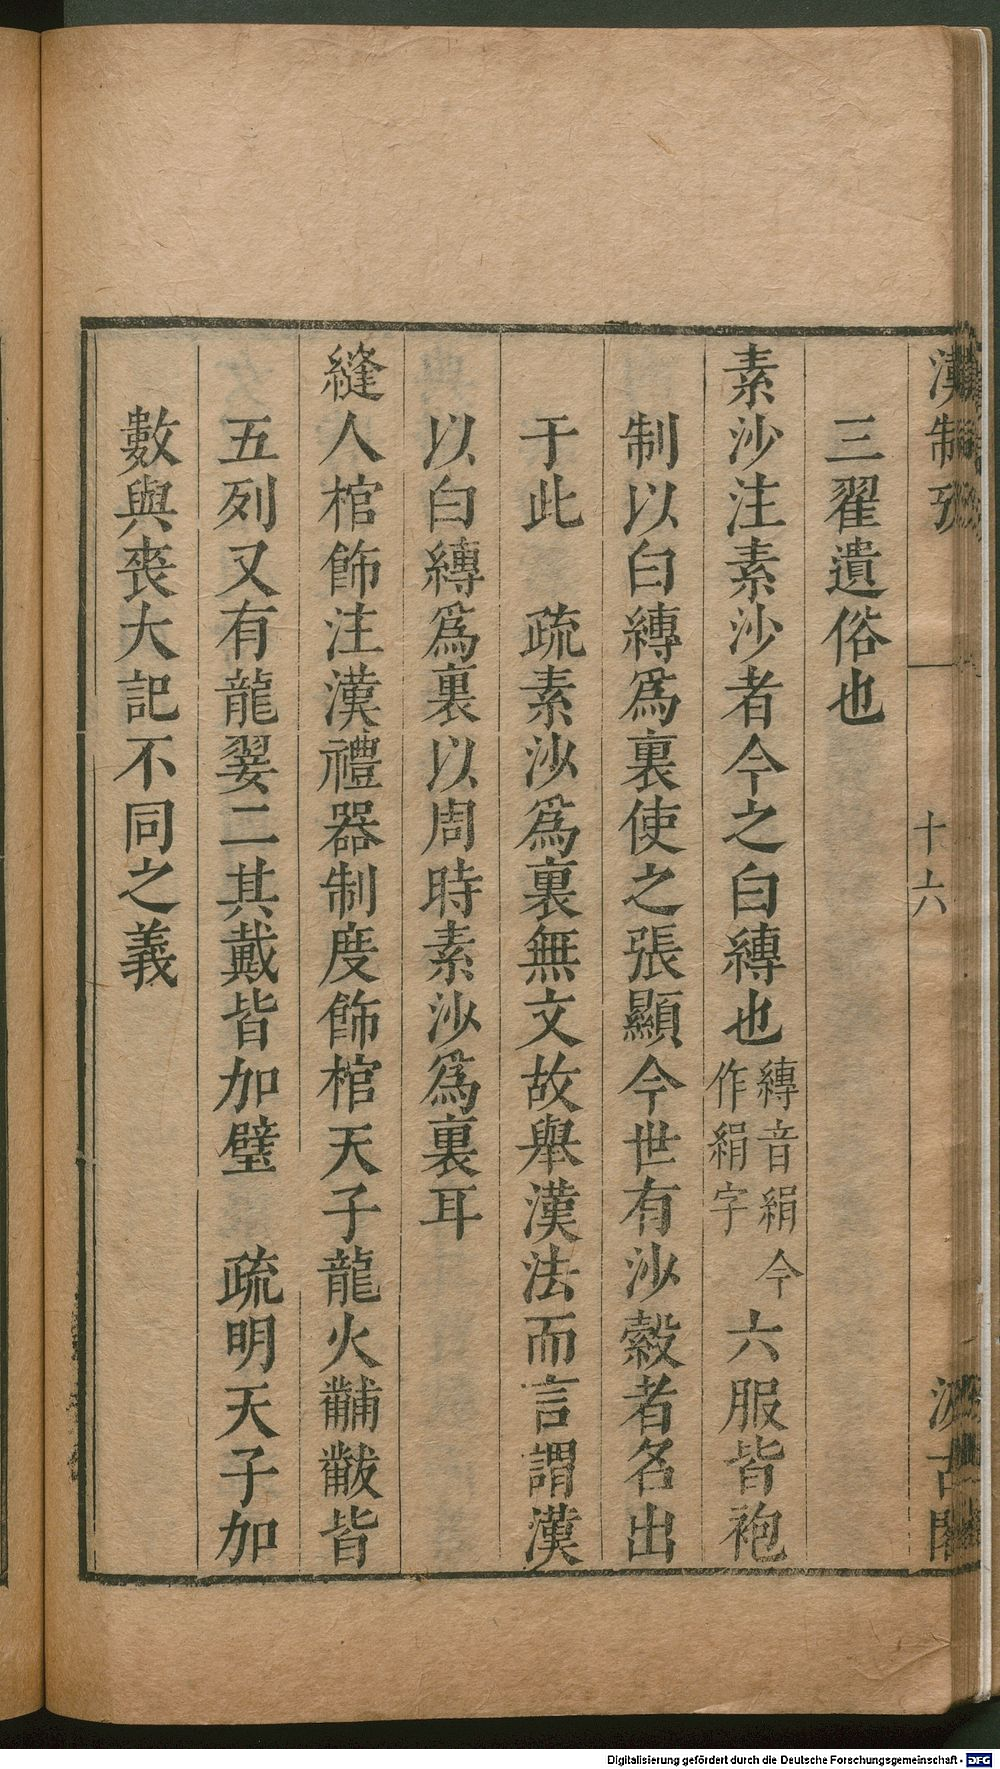 漢制攷
十六
汲古閣
三翟遺俗也
素沙注素沙者今之白縳也縳音絹今作絹字六服皆袍
制以白縳爲裏使之張顯今世有沙縠者名出
于此　疏素沙爲裏無文故舉漢法而言謂漢
以白縳爲裏以周時素沙爲裏耳
縫人棺飾注漢禮器制度飾棺天子龍火黼黻皆
五列又有龍翣二其戴皆加璧　疏明天子加
數與喪大記不同之義
Digitalisierung gefördert durch die Deutsche Forschungsgemeinschaft - DFG